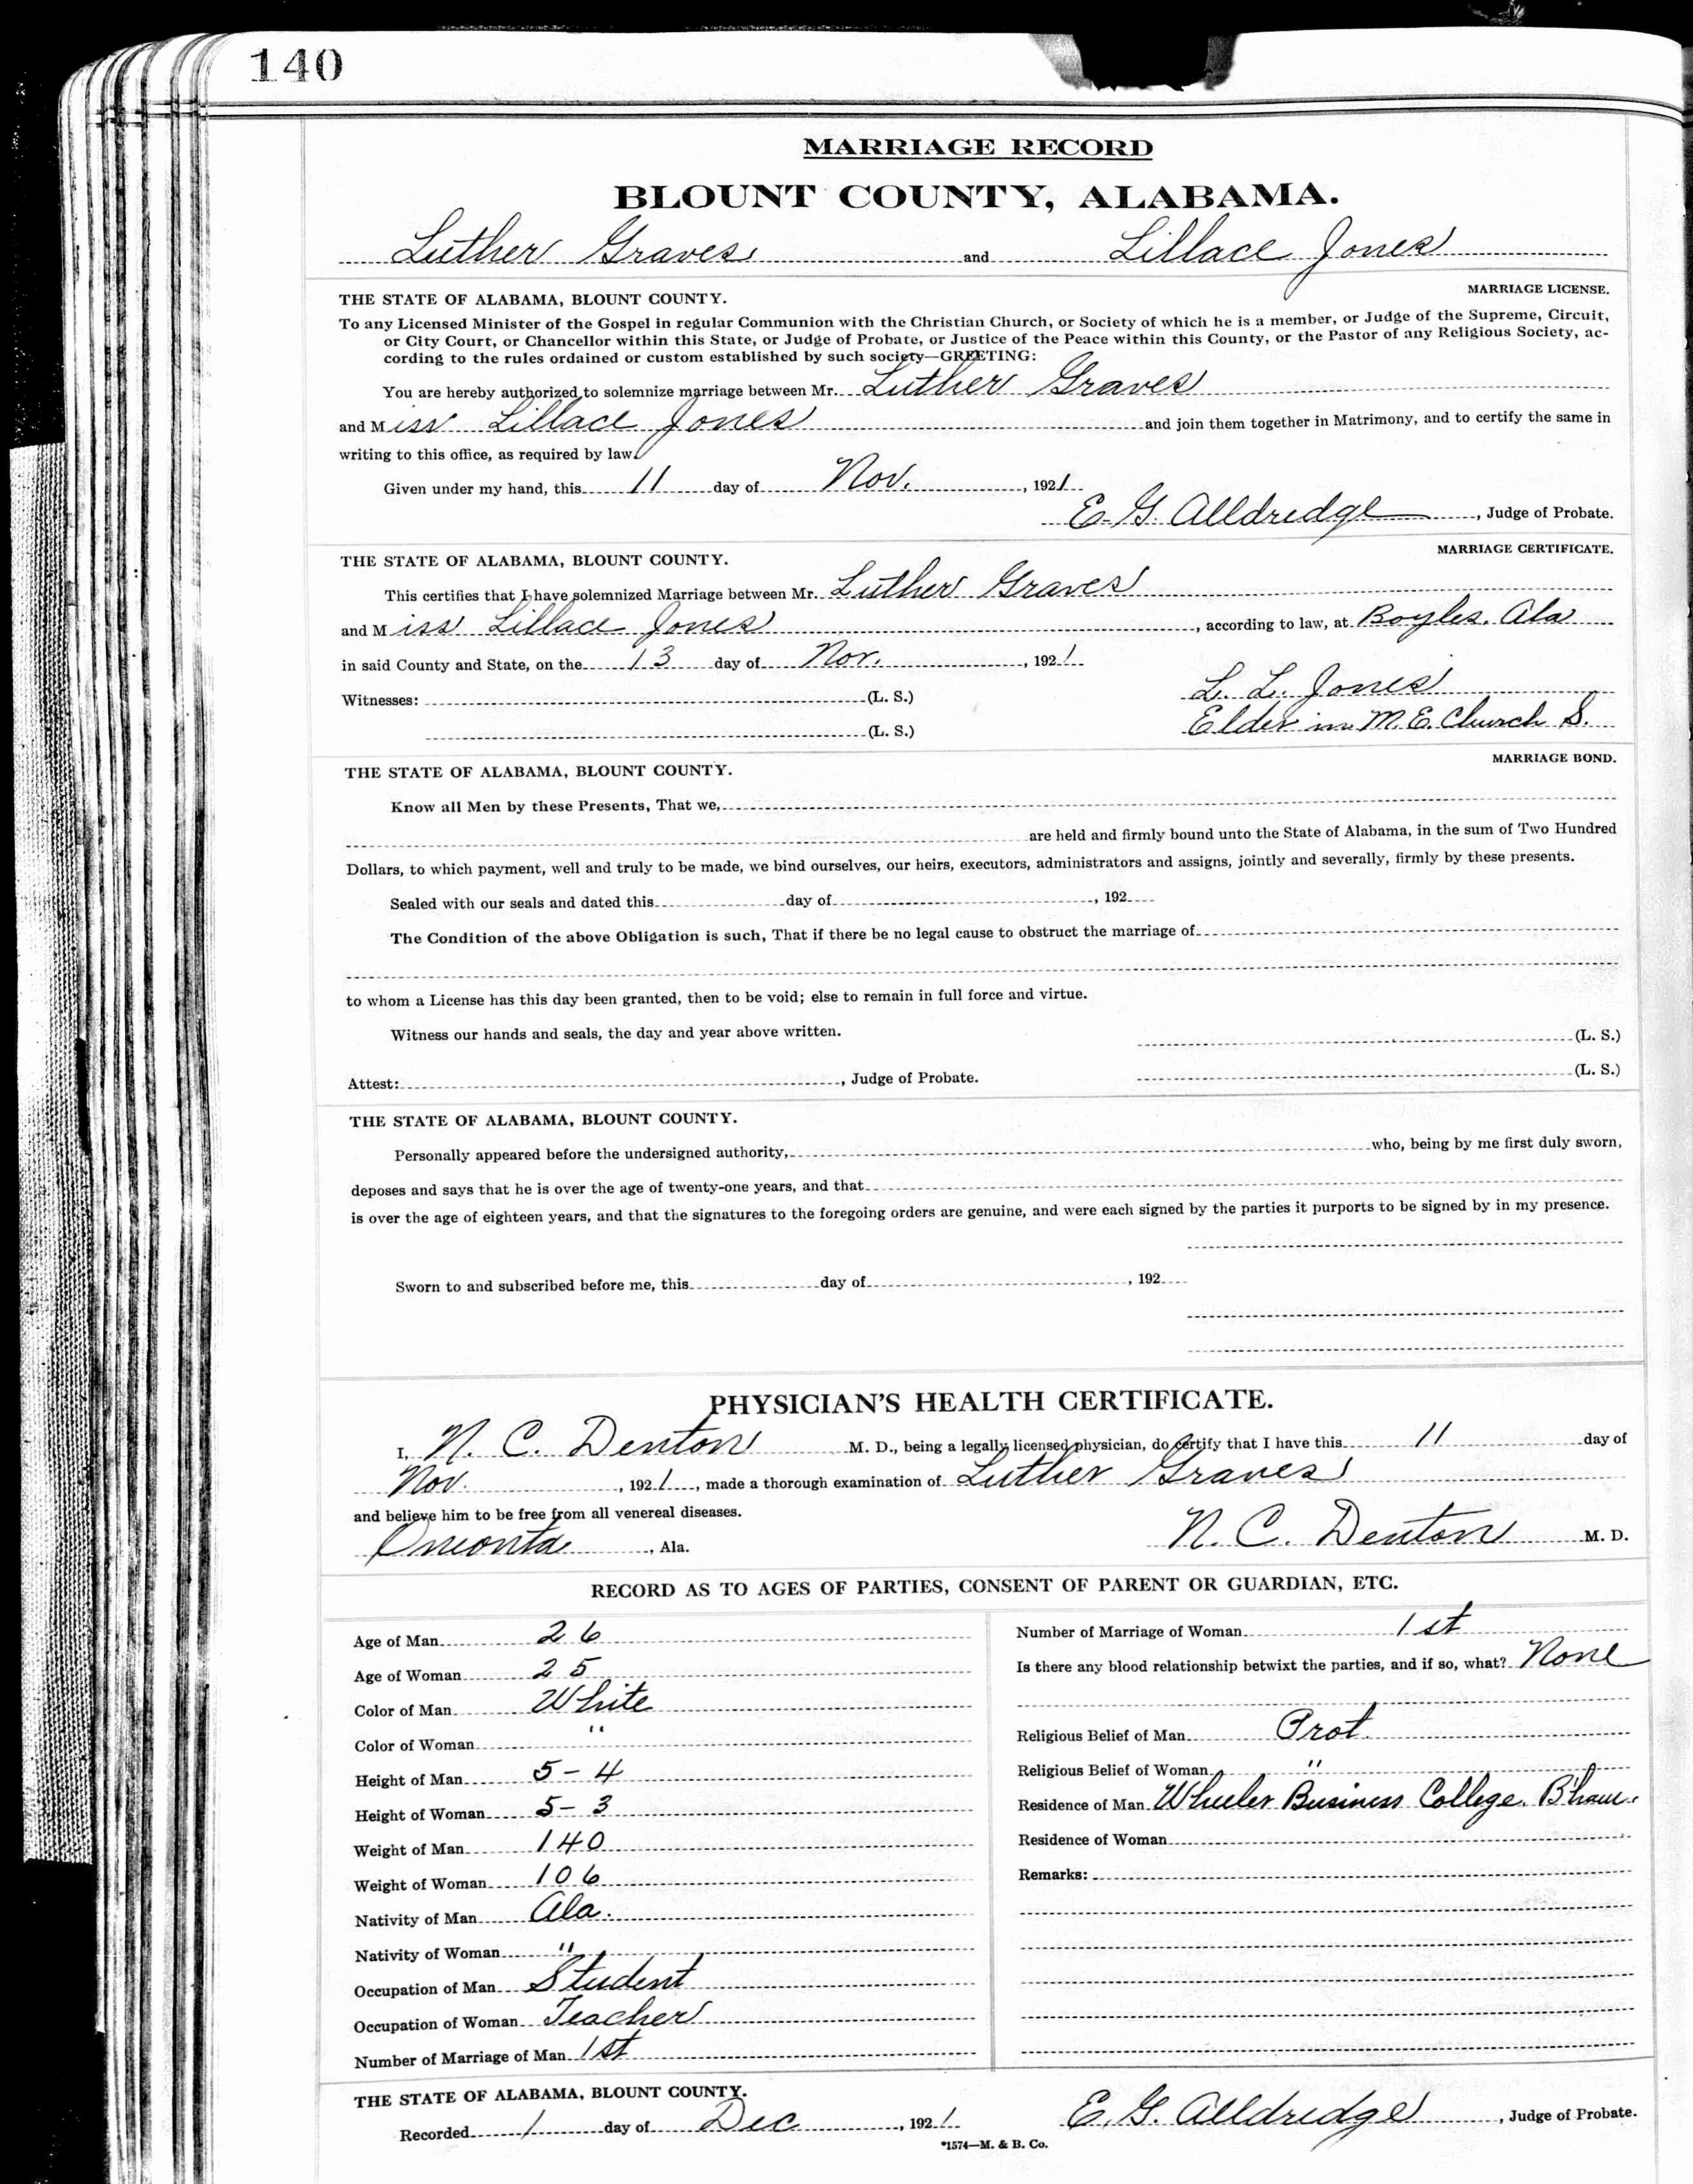 140
MARRIAGE RECORD
BLOUNT COUNTY, ALABAMA.
Luther Graves and Lillace Jones
THE STATE OF ALABAMA, BLOUNT COUNTY. MARRIAGE LICENSE.
To any Licensed Minister of the Gospel in regular Communion with the Christian Church, or Society of which he is a member, or Judge of the Supreme, Circuit,
or City Court, or Chancellor within this State, or Judge of Probate, or Justice of the Peace within this County, or the Pastor of any Religious Society, ac-
cording to the rules ordained or custom established by such society—GREETING:
You are hereby authorized to solemnize marriage between Mr. Luther Graves
and Miss Lillace Jones and join them together in Matrimony, and to certify the same in
writing to this office, as required by law.
Given under my hand, this 11 day of Nov., 1921
E. G. Alldredge, Judge of Probate.
THE STATE OF ALABAMA, BLOUNT COUNTY. MARRIAGE CERTIFICATE.
This certifies that I have solemnized Marriage between Mr. Luther Graves
and Miss Lillace Jones, according to law, at Boyles, Ala
in said County and State, on the 13 day of Nov., 1921
Witnesses: (L. S.) L. L. Jones
(L. S.) Elder in M. E. Church S.
THE STATE OF ALABAMA, BLOUNT COUNTY. MARRIAGE BOND.
Know all Men by these Presents, That we,
are held and firmly bound unto the State of Alabama, in the sum of Two Hundred
Dollars, to which payment, well and truly to be made, we bind ourselves, our heirs, executors, administrators and assigns, jointly and severally, firmly by these presents.
Sealed with our seals and dated this day of , 192
The Condition of the above Obligation is such, That if there be no legal cause to obstruct the marriage of
to whom a License has this day been granted, then to be void; else to remain in full force and virtue.
Witness our hands and seals, the day and year above written. (L. S.)
Attest: , Judge of Probate. (L. S.)
THE STATE OF ALABAMA, BLOUNT COUNTY.
Personally appeared before the undersigned authority, who, being by me first duly sworn,
deposes and says that he is over the age of twenty-one years, and that
is over the age of eighteen years, and that the signatures to the foregoing orders are genuine, and were each signed by the parties it purports to be signed by in my presence.
Sworn to and subscribed before me, this day of , 192
PHYSICIAN'S HEALTH CERTIFICATE.
I, N. C. Denton M. D., being a legally licensed physician, do certify that I have this 11 day of
Nov., 1921, made a thorough examination of Luther Graves
and believe him to be free from all venereal diseases.
Oneonta, Ala. N. C. Denton M. D.
RECORD AS TO AGES OF PARTIES, CONSENT OF PARENT OR GUARDIAN, ETC.
Age of Man 26
Age of Woman 25
Color of Man White
Color of Woman "
Height of Man 5-4
Height of Woman 5-3
Weight of Man 140
Weight of Woman 106
Nativity of Man Ala.
Nativity of Woman "
Occupation of Man Student
Occupation of Woman Teacher
Number of Marriage of Man 1st
Number of Marriage of Woman 1st
Is there any blood relationship betwixt the parties, and if so, what? None
Religious Belief of Man Prot.
Religious Belief of Woman "
Residence of Man Wheeler Business College. B'ham.
Residence of Woman
Remarks:
THE STATE OF ALABAMA, BLOUNT COUNTY.
Recorded 1 day of Dec, 1921 E. G. Alldredge, Judge of Probate.
*1574—M. & B. Co.